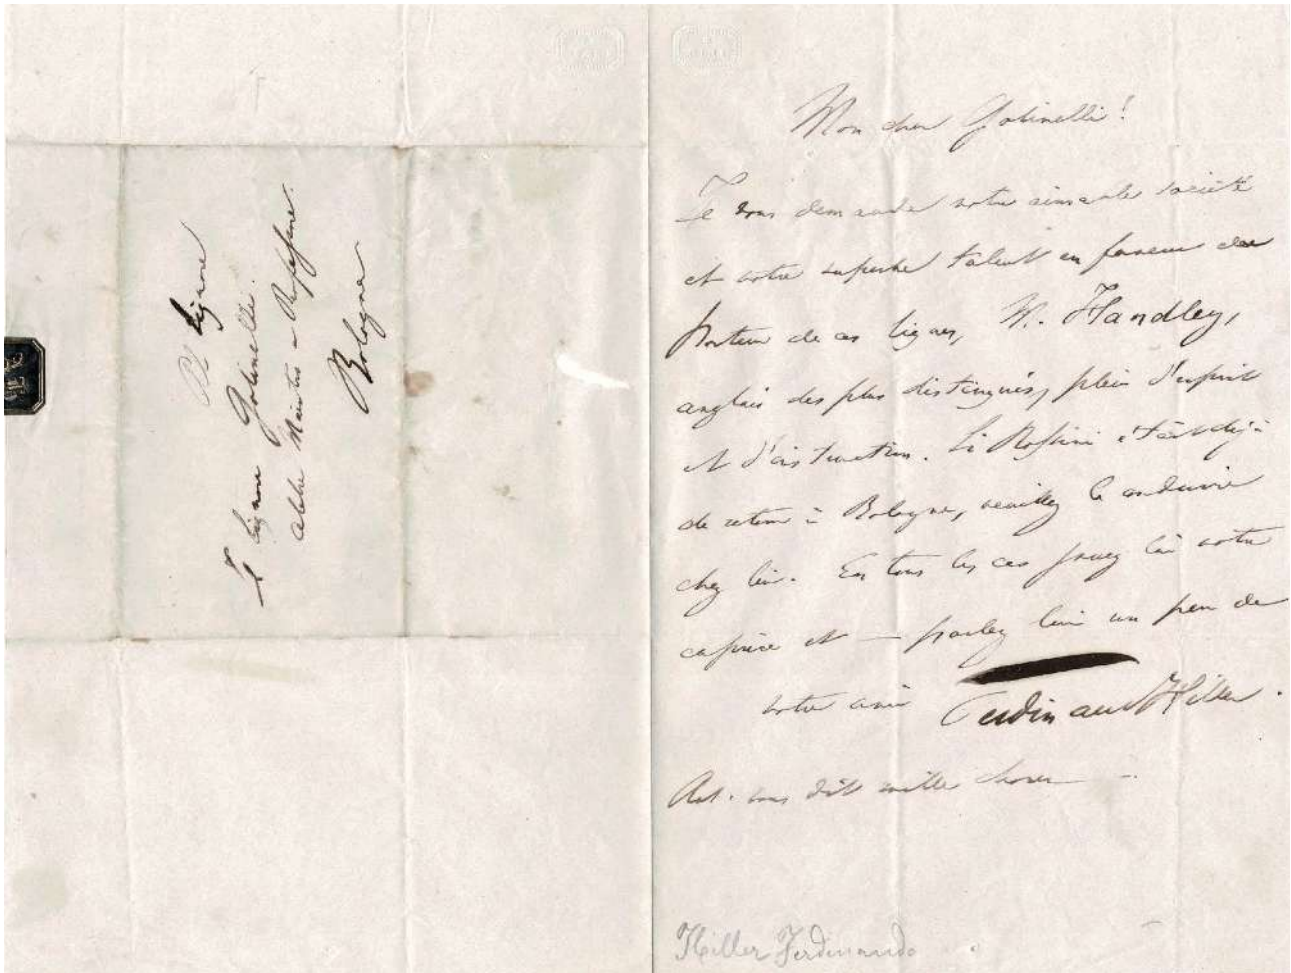 Al Signore
Il Signore Golinelli.
celebre Maestro e Professore.
Bologna
Mon cher Golinelli!
Je vous demande votre aimable société
et votre superbe talent en faveur du
porteur de ces lignes, M. Handley,
anglais des plus distingués, plein d'esprit
et d'instruction. Si Rossini était déjà
de retour à Bologne, veuillez le conduire
chez lui. En tous les cas jouez lui votre
caprice et — parlez lui un peu de
votre ami Ferdinand Hiller.
vous dit mille choses
Hiller Ferdinando